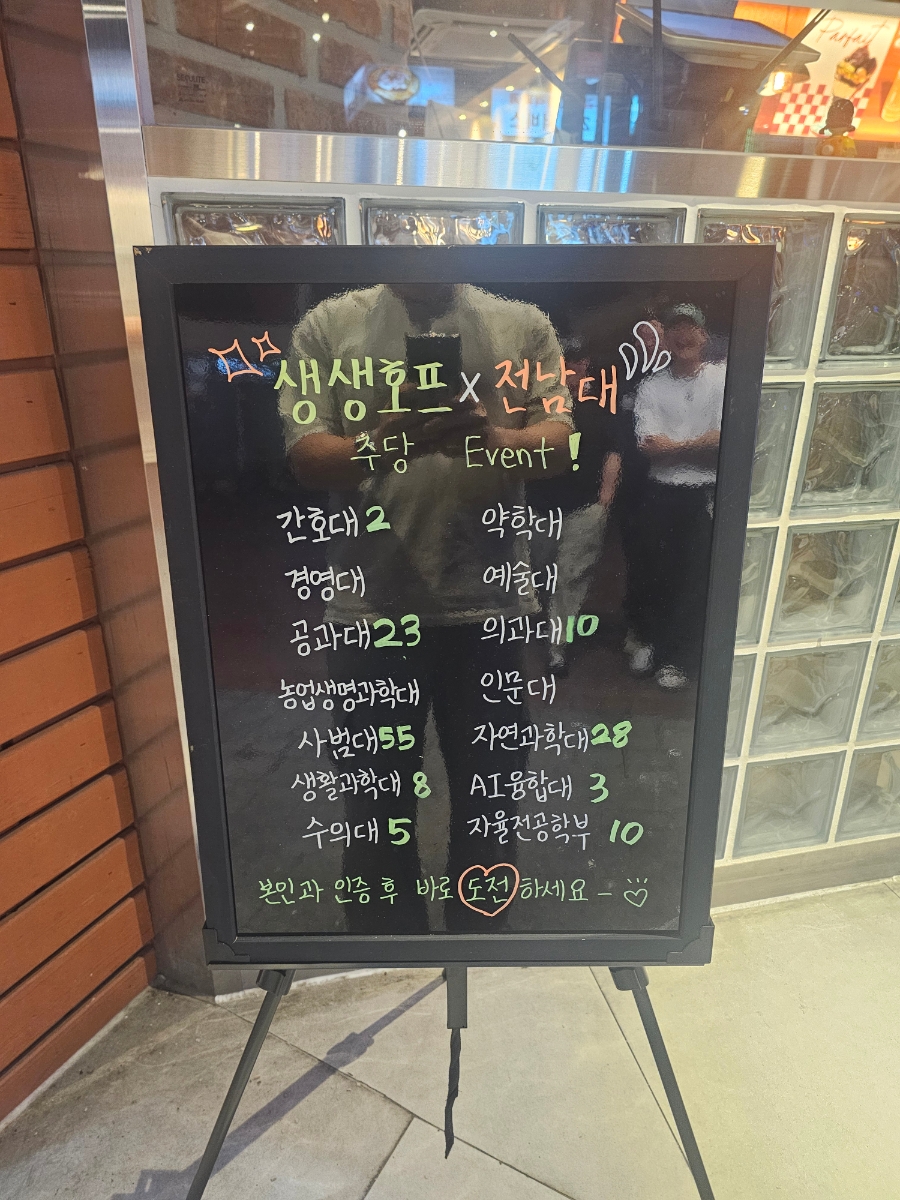 Parfait
생생호프 X 전남대
주당 Event!
간호대 2
약학대
경영대
예술대
공과대 23
의과대 10
농업생명과학대
인문대
사범대 55
자연과학대 28
생활과학대 8
AI융합대 3
수의대 5
자율전공학부 10
본인과 인증 후 바로 도전 하세요 -